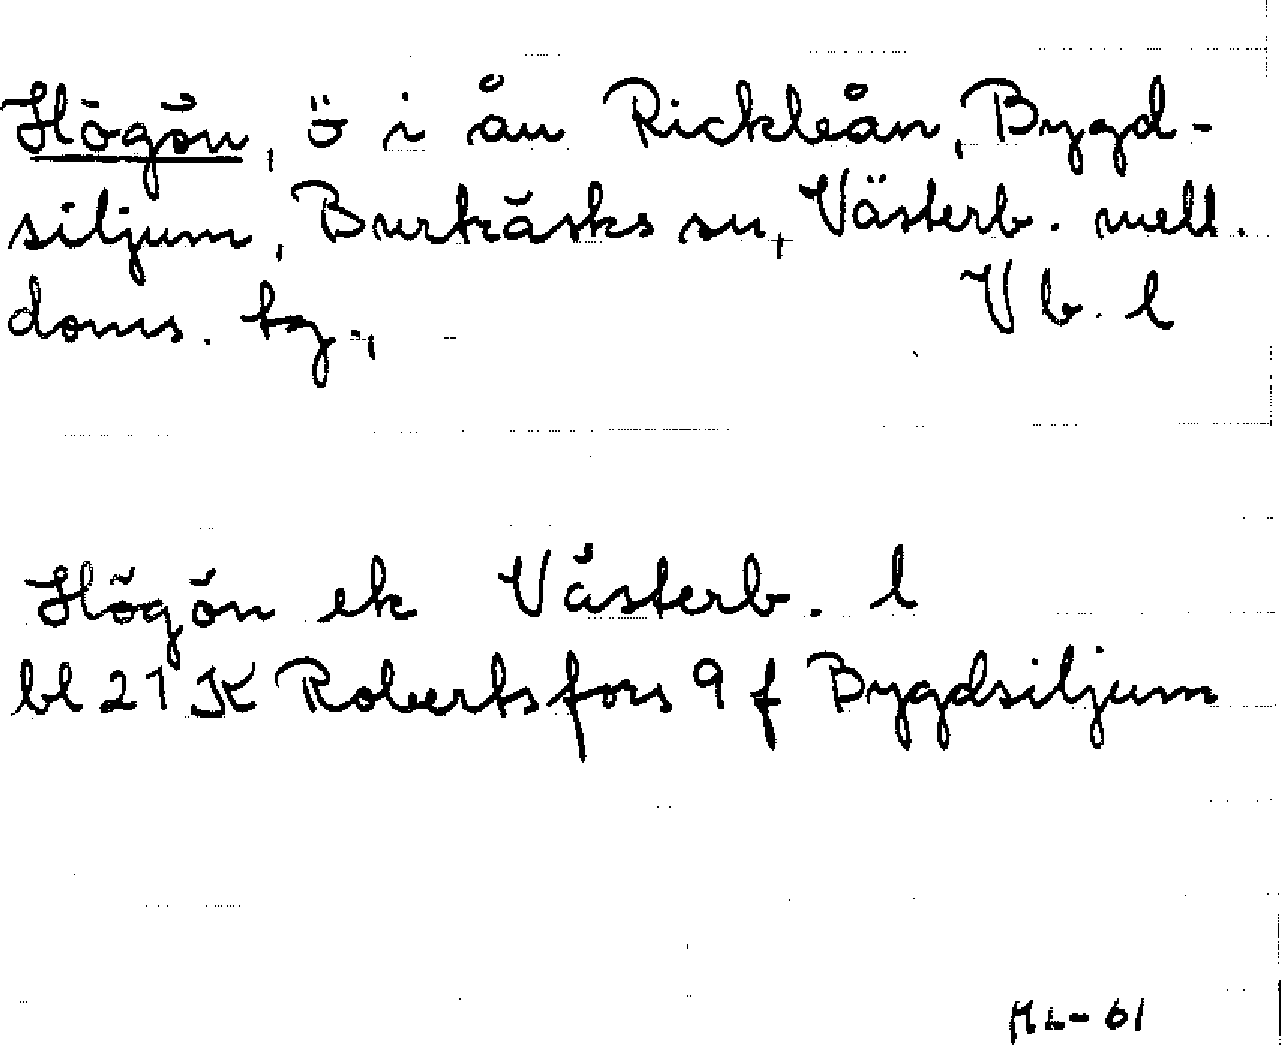 Högön, ö i ån Rickleån, Bygd-
siljum, Burträsks sn, Västerb. mell.
doms. tg.,
Vb. l
Högön ek Västerb. l
bl 21 K Robertsfors 9 f Bygdsiljum
ML-61